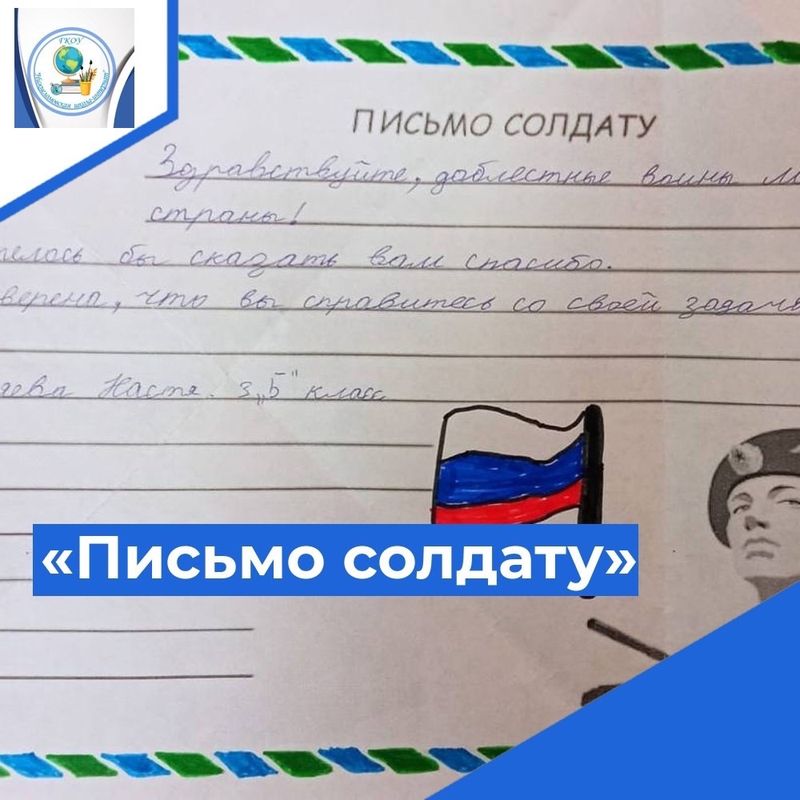 ГКОУ
ПИСЬМО СОЛДАТУ
Здравствуйте, доблестные воины
страны!
телось бы сказать вам спасибо.
верена, что вы справитесь со своей задаче
Настя. 3 „Б" класс
«Письмо солдату»